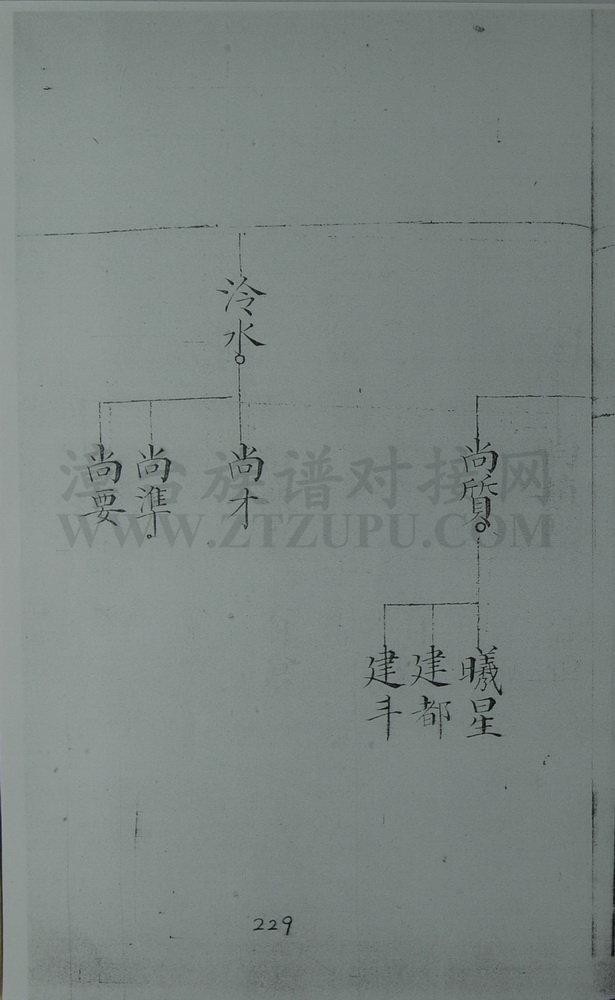 泠水
尚質
尚才
尚準
尚要
曦星
建都
建斗
漳台族谱对接网
WWW.ZTZUPU.COM
229